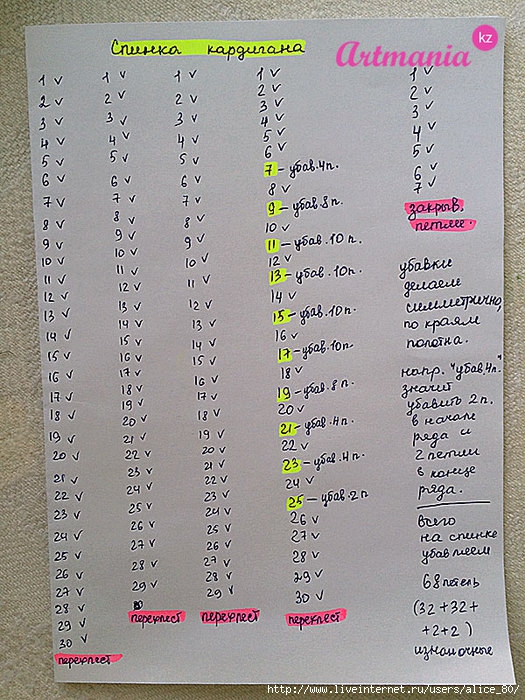 Спинка кардигана
Artmania kz
1 v
2 v
3 v
4 v
5 v
6 v
7 v
8 v
9 v
10 v
11 v
12 v
13 v
14 v
15 v
16 v
17 v
18 v
19 v
20 v
21 v
22 v
23 v
24 v
25 v
26 v
27 v
28 v
29 v
30 v
перехлест
1 v
2 v
3 v
4 v
5 v
6 v
7 v
8 v
9 v
10 v
11 v
12 v
13 v
14 v
15 v
16 v
17 v
18 v
19 v
20 v
21 v
22 v
23 v
24 v
25 v
26 v
27 v
28 v
29 v
перехлест
1 v
2 v
3 v
4 v
5 v
6 v
7 v
8 v
9 v
10 v
11 v
12 v
13 v
14 v
15 v
16 v
17 v
18 v
19 v
20 v
21 v
22 v
23 v
24 v
25 v
26 v
27 v
28 v
29 v
перехлест
1 v
2 v
3 v
4 v
5 v
6 v
7 – убав. 4 п.
8 v
9 – убав. 8 п.
10 v
11 – убав. 10 п.
12 v
13 – убав. 10 п.
14 v
15 – убав. 10 п.
16 v
17 – убав. 10 п.
18 v
19 – убав. 8 п.
20 v
21 – убав. 4 п.
22 v
23 – убав. 4 п.
24 v
25 – убав. 2 п
26 v
27 v
28 v
29 v
30 v
перехлест
1 v
2 v
3 v
4 v
5 v
6 v
7 v
закрыв.
петли.
убавки
делаем
симметрично,
по краям
полотна.
напр. "убав. 4 п."
значит
убавить 2 п.
в начале
ряда и
2 петли
в конце
ряда.
всего
на спинке
убавляем
68 петель
(32 + 32 +
+ 2 + 2)
изнаночные
http://www.liveinternet.ru/users/alice_80/